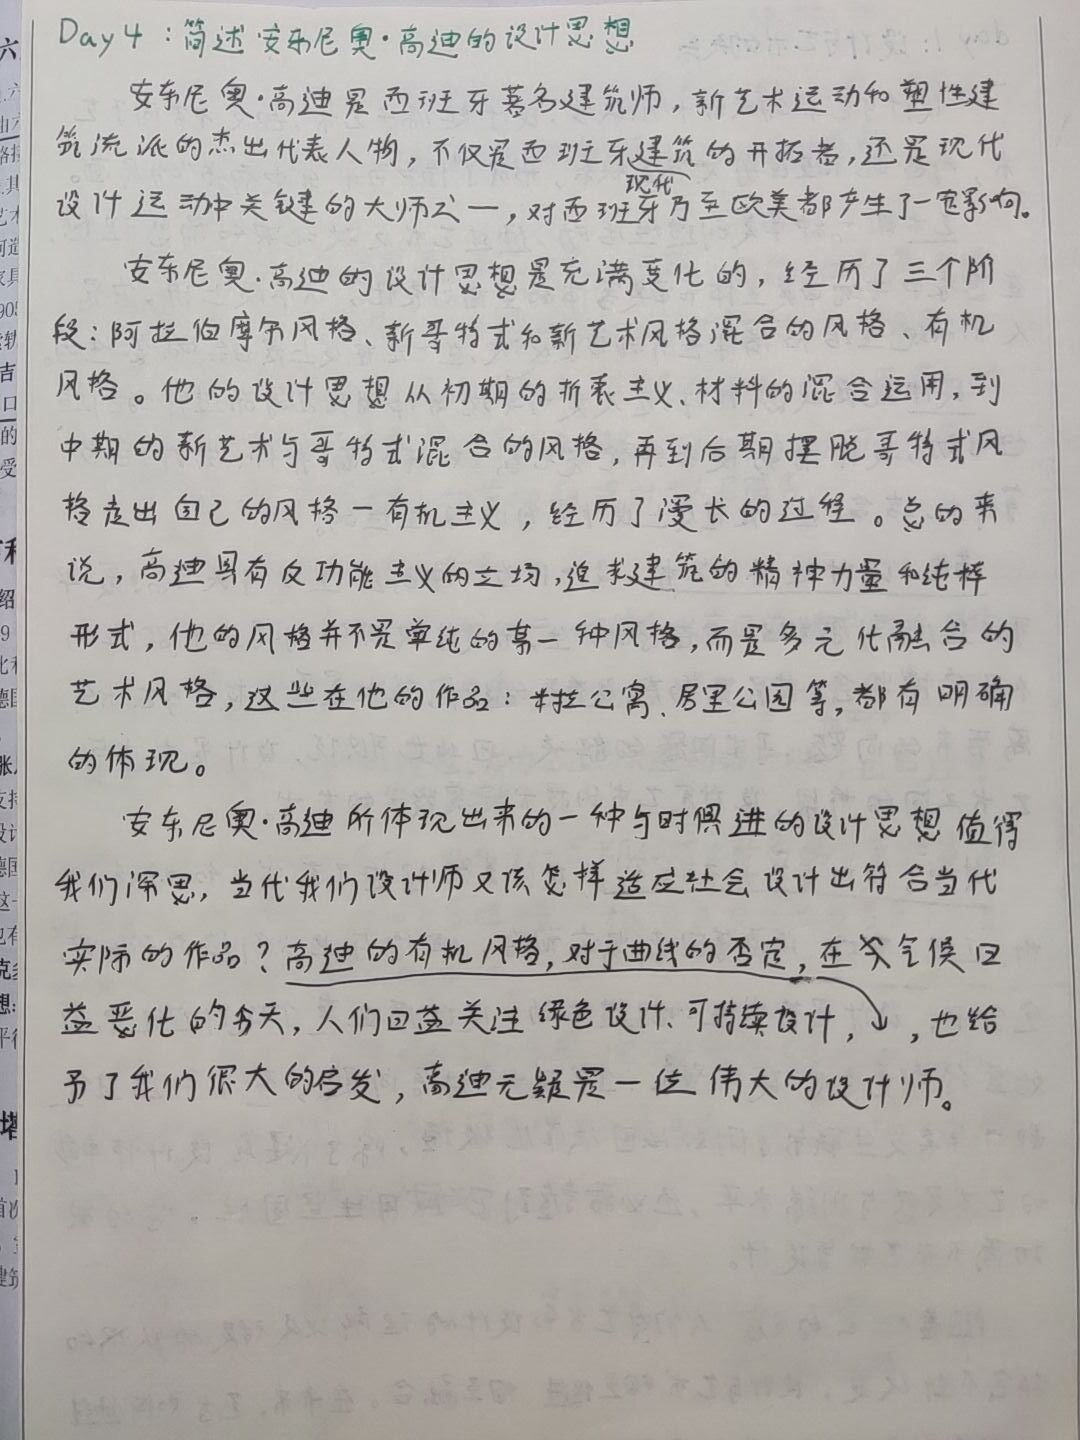 Day 4：简述安东尼奥·高迪的设计思想
安东尼奥·高迪是西班牙著名建筑师，新艺术运动和塑性建
筑流派的杰出代表人物，不仅是西班牙现代建筑的开拓者，还是现代
设计运动中关键的大师之一，对西班牙乃至欧美都产生了一定影响。
安东尼奥·高迪的设计思想是充满变化的，经历了三个阶
段：阿拉伯摩尔风格、新哥特式和新艺术风格混合的风格、有机
风格。他的设计思想从初期的折衷主义、材料的混合运用，到
中期的新艺术与哥特式混合的风格，再到后期摆脱哥特式风
格走出自己的风格—有机主义，经历了漫长的过程。总的来
说，高迪具有反功能主义的立场，追求建筑的精神力量和纯粹
形式，他的风格并不是单纯的某一种风格，而是多元化融合的
艺术风格，这些在他的作品：米拉公寓、居里公园等，都有明确
的体现。
安东尼奥·高迪所体现出来的一种与时俱进的设计思想值得
我们深思，当代我们设计师又该怎样适应社会设计出符合当代
实际的作品？高迪的有机风格，对于曲线的否定，在气候日
益恶化的今天，人们日益关注绿色设计、可持续设计，，也给
予了我们很大的启发，高迪无疑是一位伟大的设计师。
六
的
受
绍
9
德国
支持
设计
德国
这一
也有
想：
塔
首次
建筑